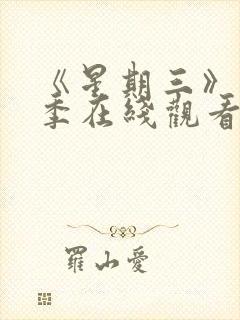 《星期三》
季在綫觀看
羅山愛